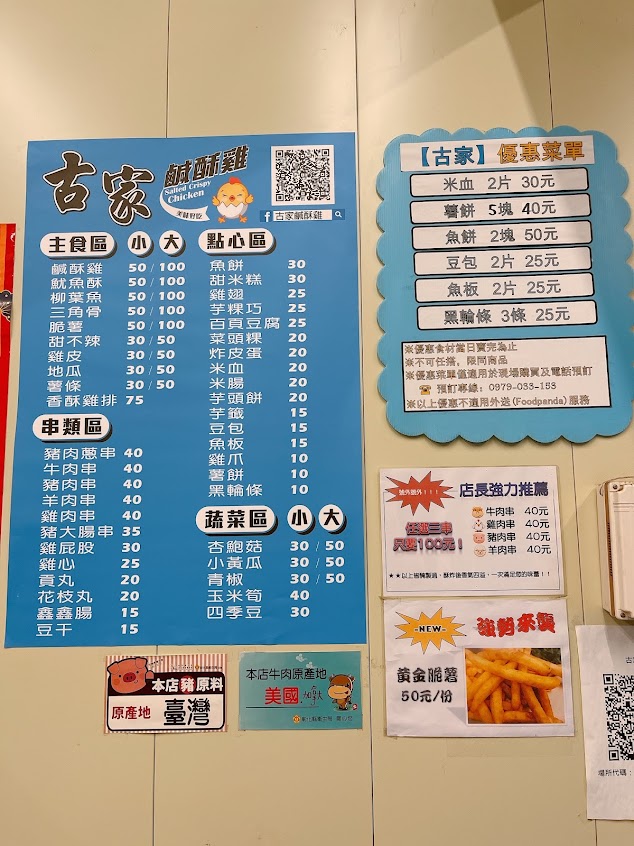 古家
鹹酥雞
Salted Crispy
Chicken
美味好吃
古家鹹酥雞
主食區 小 大
鹹酥雞 50 / 100
魷魚酥 50 / 100
柳葉魚 50 / 100
三角骨 50 / 100
脆薯 50 / 100
甜不辣 30 / 50
雞皮 30 / 50
地瓜 30 / 50
薯條 30 / 50
香酥雞排 75
串類區
豬肉蔥串 40
牛肉串 40
豬肉串 40
羊肉串 40
雞肉串 40
豬大腸串 35
雞屁股 30
雞心 25
貢丸 20
花枝丸 20
鑫鑫腸 15
豆干 15
點心區
魚餅 30
甜米糕 30
雞翅 25
芋粿巧 25
百頁豆腐 25
菜頭粿 20
炸皮蛋 20
米血 20
米腸 20
芋頭餅 20
芋籤 15
豆包 15
魚板 15
雞爪 10
薯餅 10
黑輪條 10
蔬菜區 小 大
杏鮑菇 30 / 50
小黃瓜 30 / 50
青椒 30 / 50
玉米筍 40
四季豆 30
【古家】優惠菜單
米血 2片 30元
薯餅 5塊 40元
魚餅 2塊 50元
豆包 2片 25元
魚板 2片 25元
黑輪條 3條 25元
※優惠食材當日賣完為止
※不可任搭，限同商品
※優惠菜單僅適用於現場購買及電話預訂
☎ 預訂專線：0979-033-153
※以上優惠不適用外送(Foodpanda)服務
號外號外！！！
店長強力推薦
任選三串
只要100元！
牛肉串 40元
雞肉串 40元
豬肉串 40元
羊肉串 40元
-NEW-
強勢來襲
黃金脆薯
50元/份
本店豬原料
原產地 臺灣
本店牛肉原產地
美國
場所代碼：